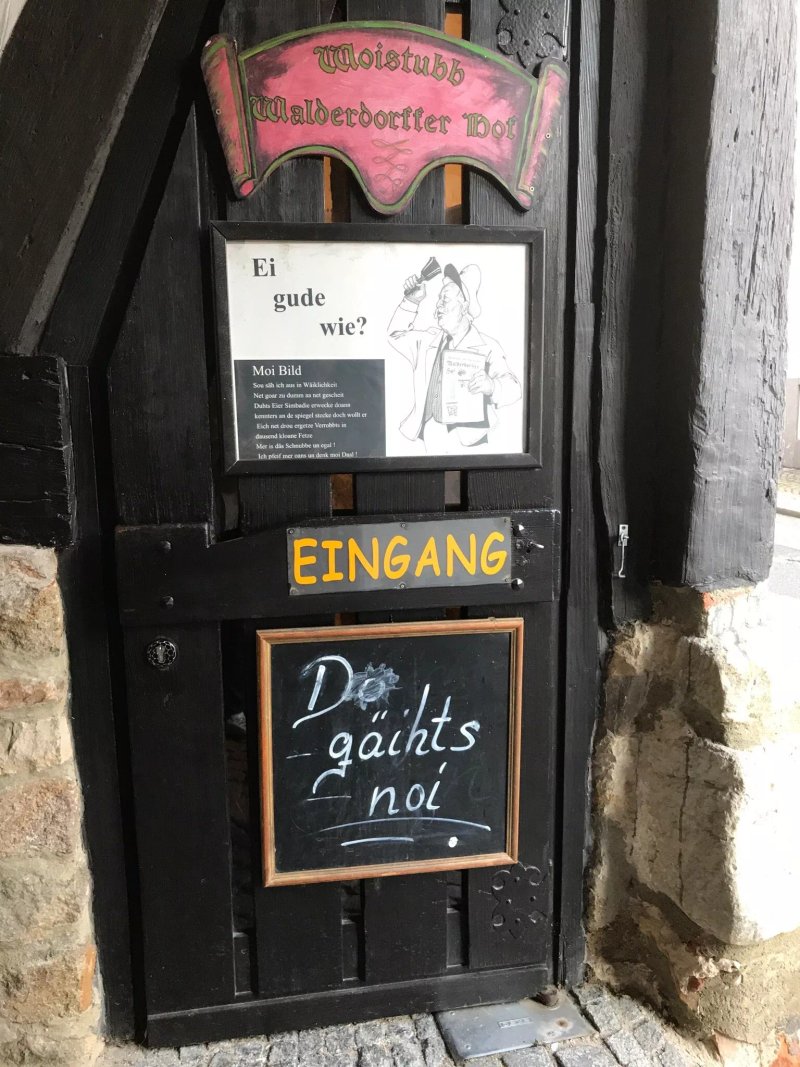 Woistubb
Walderdorffer Hof
Ei
gude
wie?
Moi Bild
Sou säh ich aus in Wäiklichkeit
Net goar zu dumm an net gescheit
Duhts Eier Simbadie erwecke doans
kennters an de spiegel stecke doch wollt er
Eich net drou ergetze Verrobbts in
dausend kloane Fetze
Mer is däs Schnubbe un egal !
Ich pfeif mer oans un denk moi Daal !
Walderdorffer
EINGANG
Do
gäihts
noi